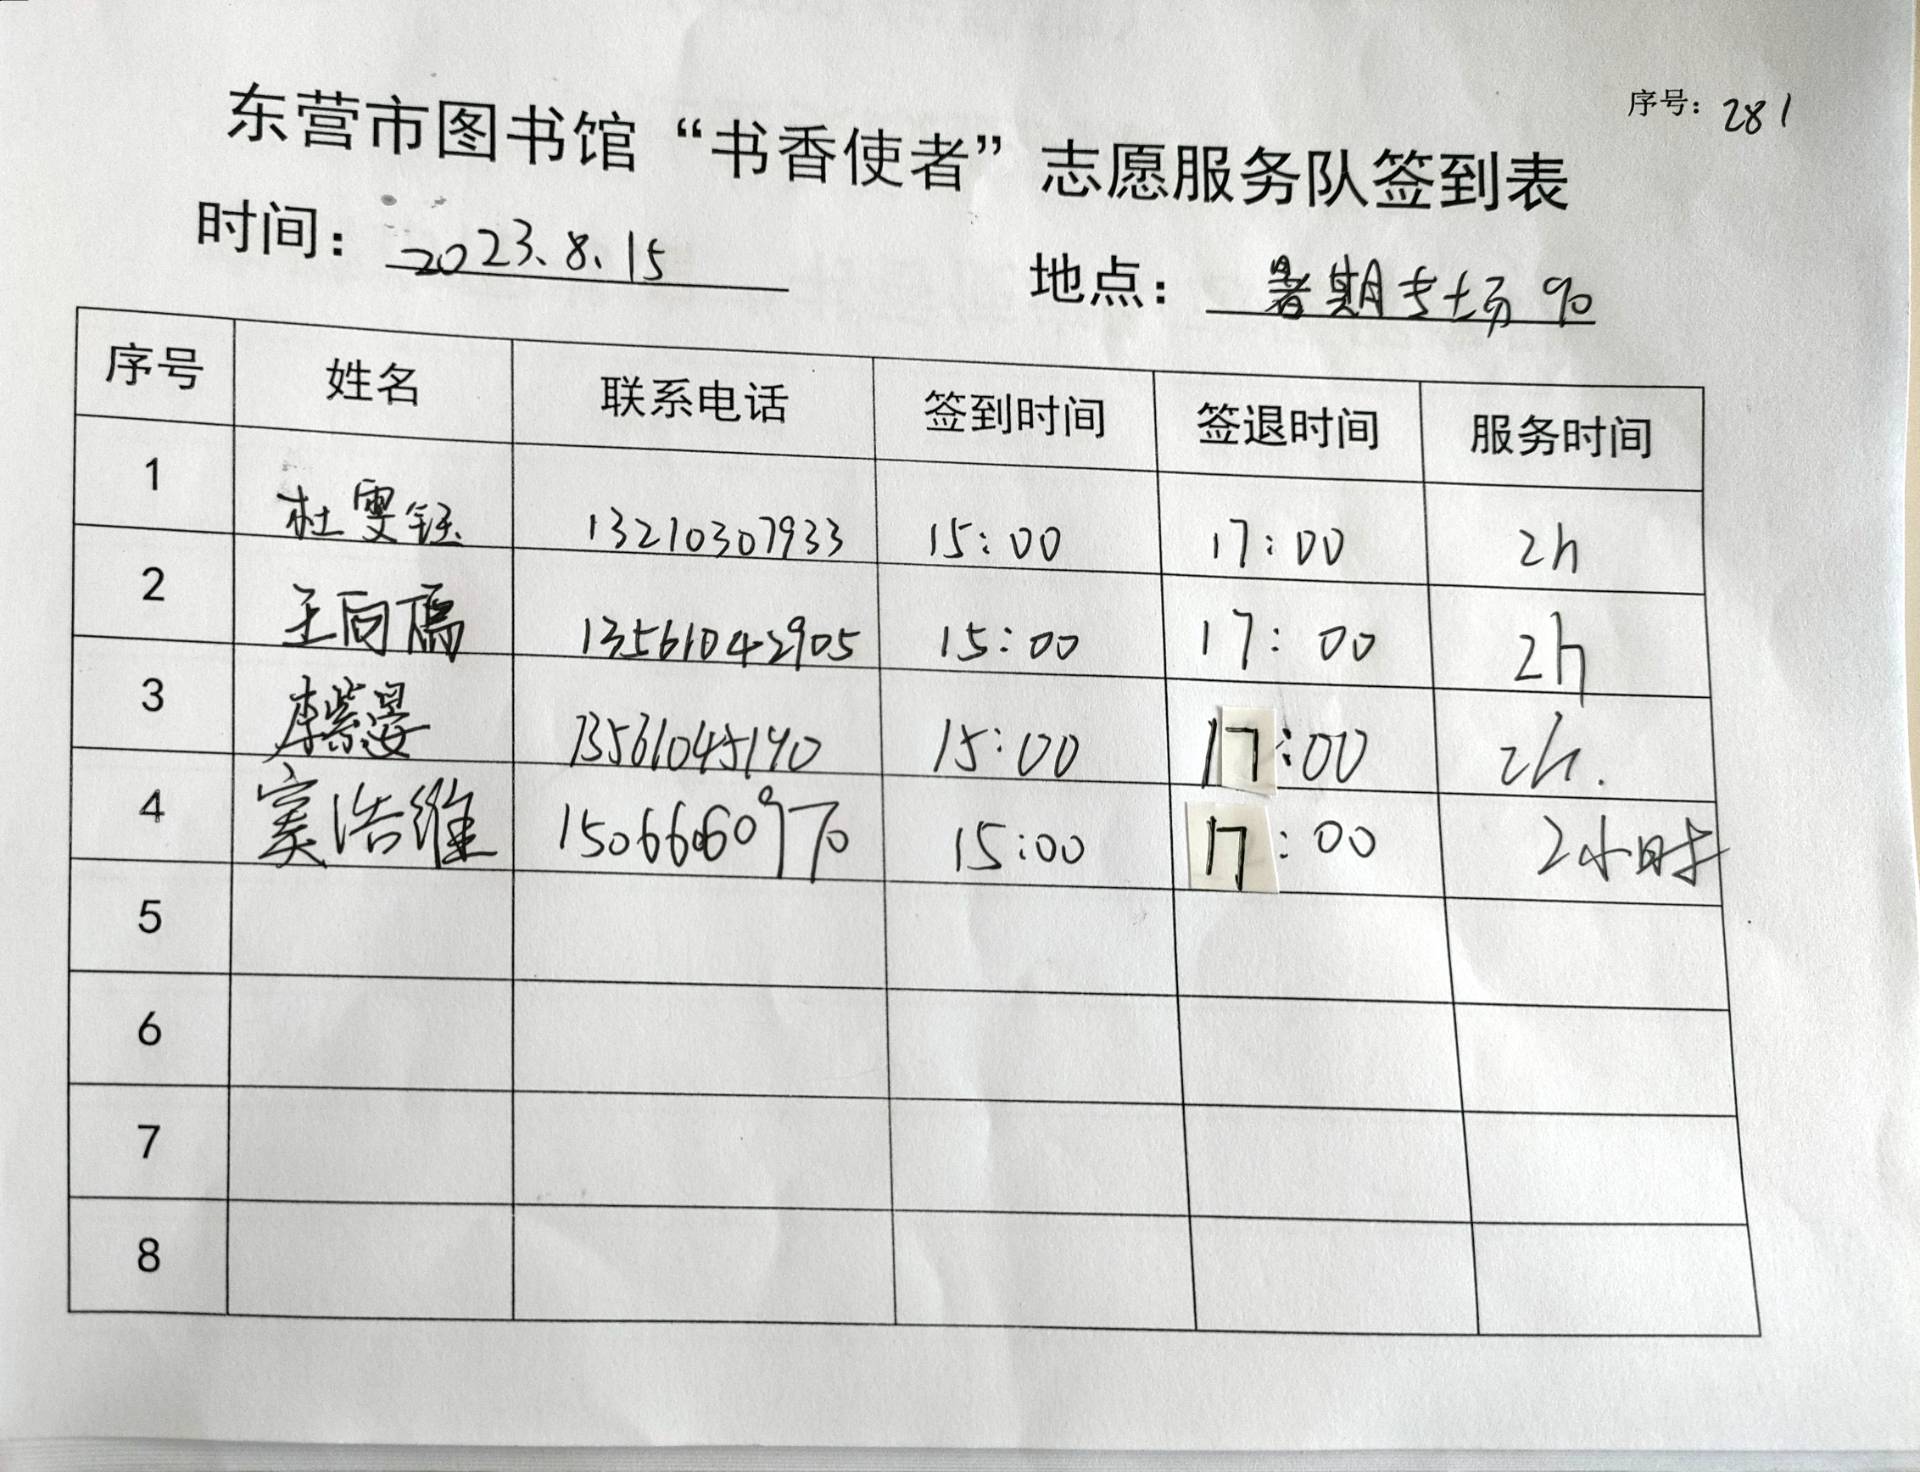 序号: 281
东营市图书馆“书香使者”志愿服务队签到表
时间: 2023.8.15 地点: 暑期专场 90
序号 姓名 联系电话 签到时间 签退时间 服务时间
1 杜雯钰 13210307933 15:00 17:00 2h
2 王向儒 13561042905 15:00 17:00 2h
3 李紫晏 13561045190 15:00 17:00 2h.
4 窦浩维 15066060970 15:00 17:00 2小时
5
6
7
8